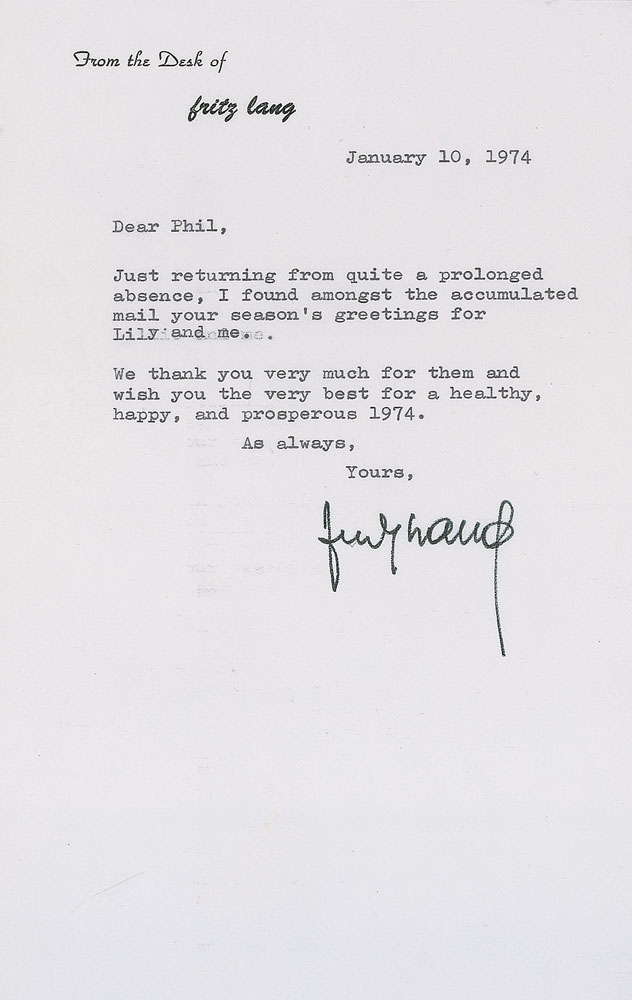 From the Desk of
fritz lang
January 10, 1974
Dear Phil,
Just returning from quite a prolonged
absence, I found amongst the accumulated
mail your season's greetings for
Lily and me.
We thank you very much for them and
wish you the very best for a healthy,
happy, and prosperous 1974.
As always,
Yours,
fritz lang